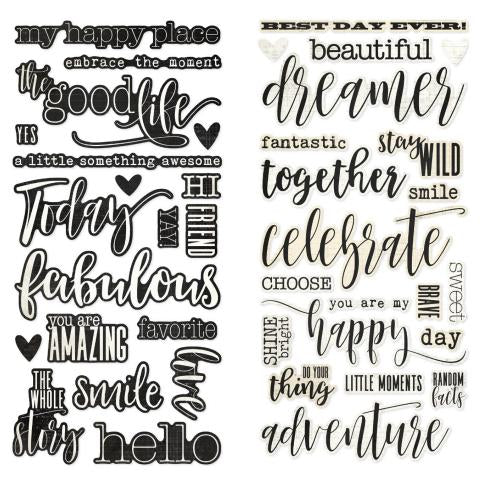 my happy place
embrace the moment
the good life
YES
a little something awesome
Today
HI FRIEND
YAY!
fabulous
you are AMAZING
favorite
love
THE WHOLE story
smile
hello
BEST DAY EVER!
beautiful
dreamer
fantastic
stay WILD
together
smile
celebrate
CHOOSE
BRAVE
sweet
you are my
SHINE bright
happy day
DO YOUR thing
LITTLE MOMENTS
RANDOM facts
adventure